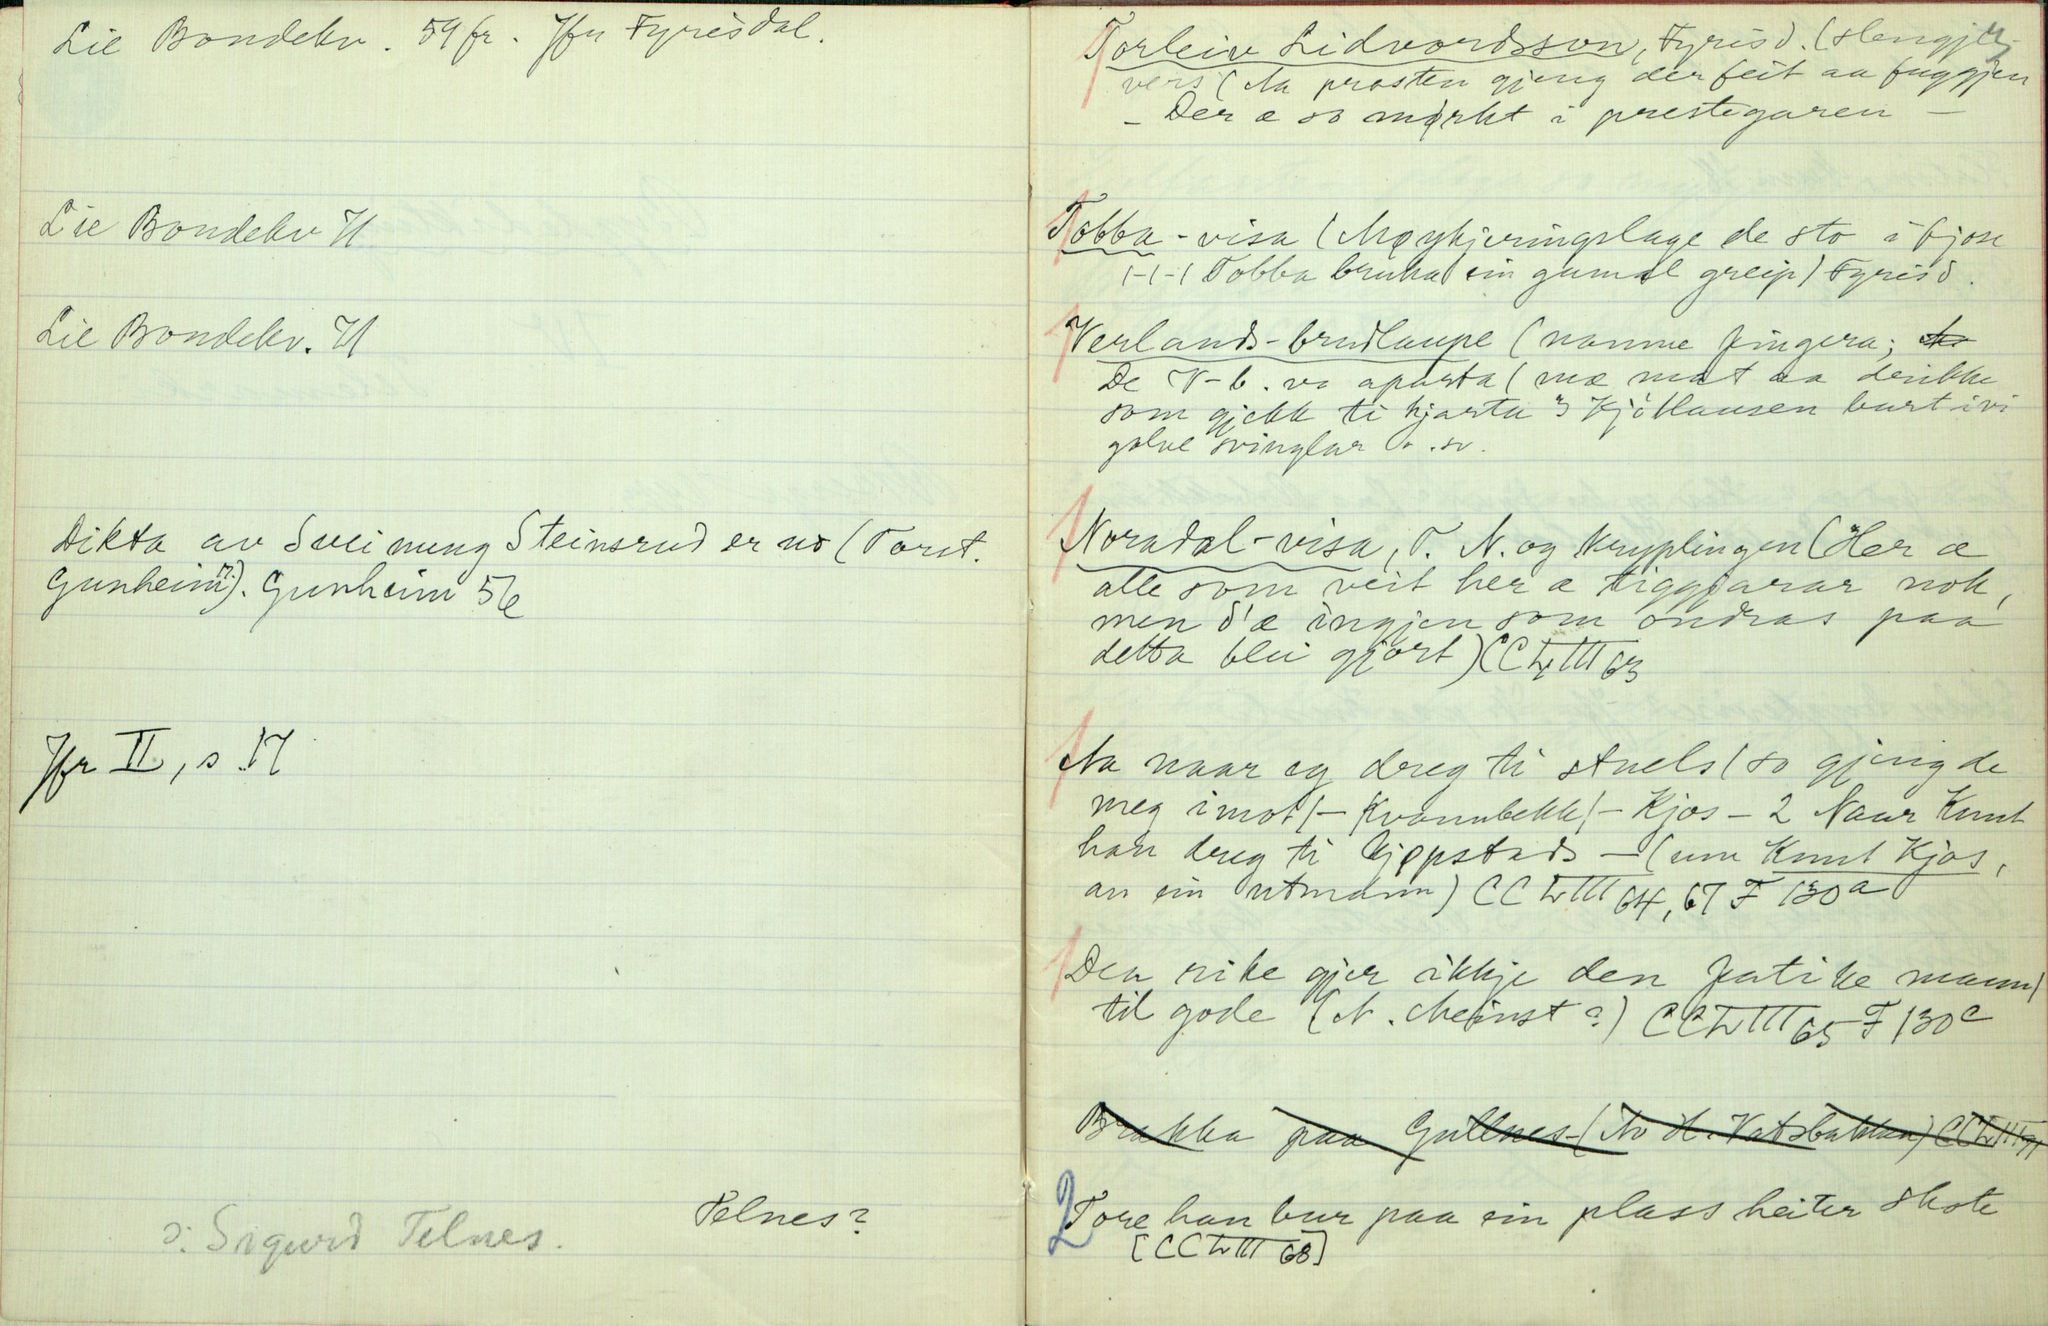 Lie Bondekv. 59 fr. Jfr Fyrisdal.
Lie Bondekv 71
Lie Bondekv. 71
Dikta av Sveinung Steinsrud er no (Torst.
Gunheim). Gunheim 56
Jfr II, s 17
ɔ: Sigurd Telnes.
Telnes?
Torleiv Lidvordsson, Fyrisd. (slengje-
vers (Aa prosten gjeng der feit aa fuggjen
– Der æ so mørkt i prestegaren –
Tobba-visa (Møykjeringslage de sto i Kjose
/-/-/ Tobba bruka ein gamal greip) Fyrisd.
Verlands-brudlaupe (nanne fingera;
De V-b. va aparta (mæ mat aa drikke
som gjekk ti hjarta 3 Kjöllausen burt ivi
golve svinglar o.sv.
Noradal-visa, T. N. og Kryplingen (Her æ
alle som veit her æ tiggjarar nok,
men d'æ ingjen som ondras paa
detta blei gjort) CC LVIII 63
Aa naar eg dreg ti stuels (so gjeng de
meg imot/– Kvannbekk/– Kjos – 2 Naar Knut
han dreg ti Kjøpstads – (um Knut Kjos,
av ein utmann) CC LVIII 64, 67 F 130 a
Den rike gjer ikkje den fatike mann/
til gode (N. Meinst?) CC LVIII 65 F 130 c
Brakka paa Gullnes (Av H. Vatsbakken) CC LVIII
2 Tore han bur paa ein plass heiter Skote
[CC LVIII 68]